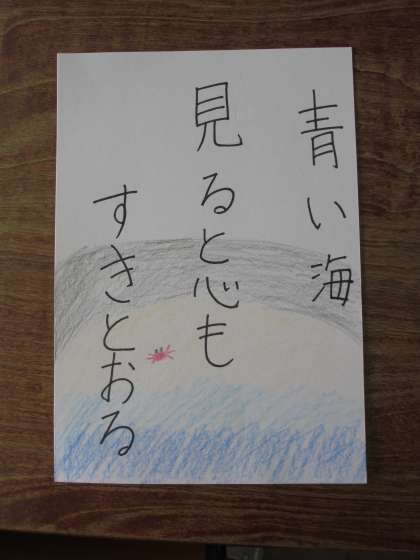 青い海
見ると心も
すきとおる